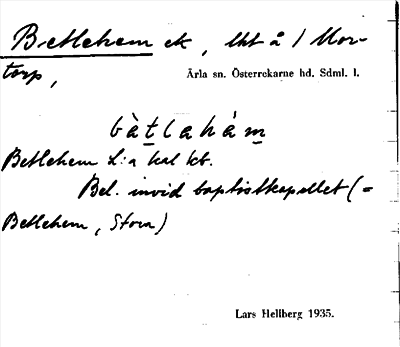 Betlehem ek, lht å 1 Mor-
torp,
Ärla sn. Österrekarne hd. Sdml. l.
bètlahèm
Betlehem L:a kal kt.
Bel. invid baptistkapellet (=
Betlehem, Stora)
Lars Hellberg 1935.